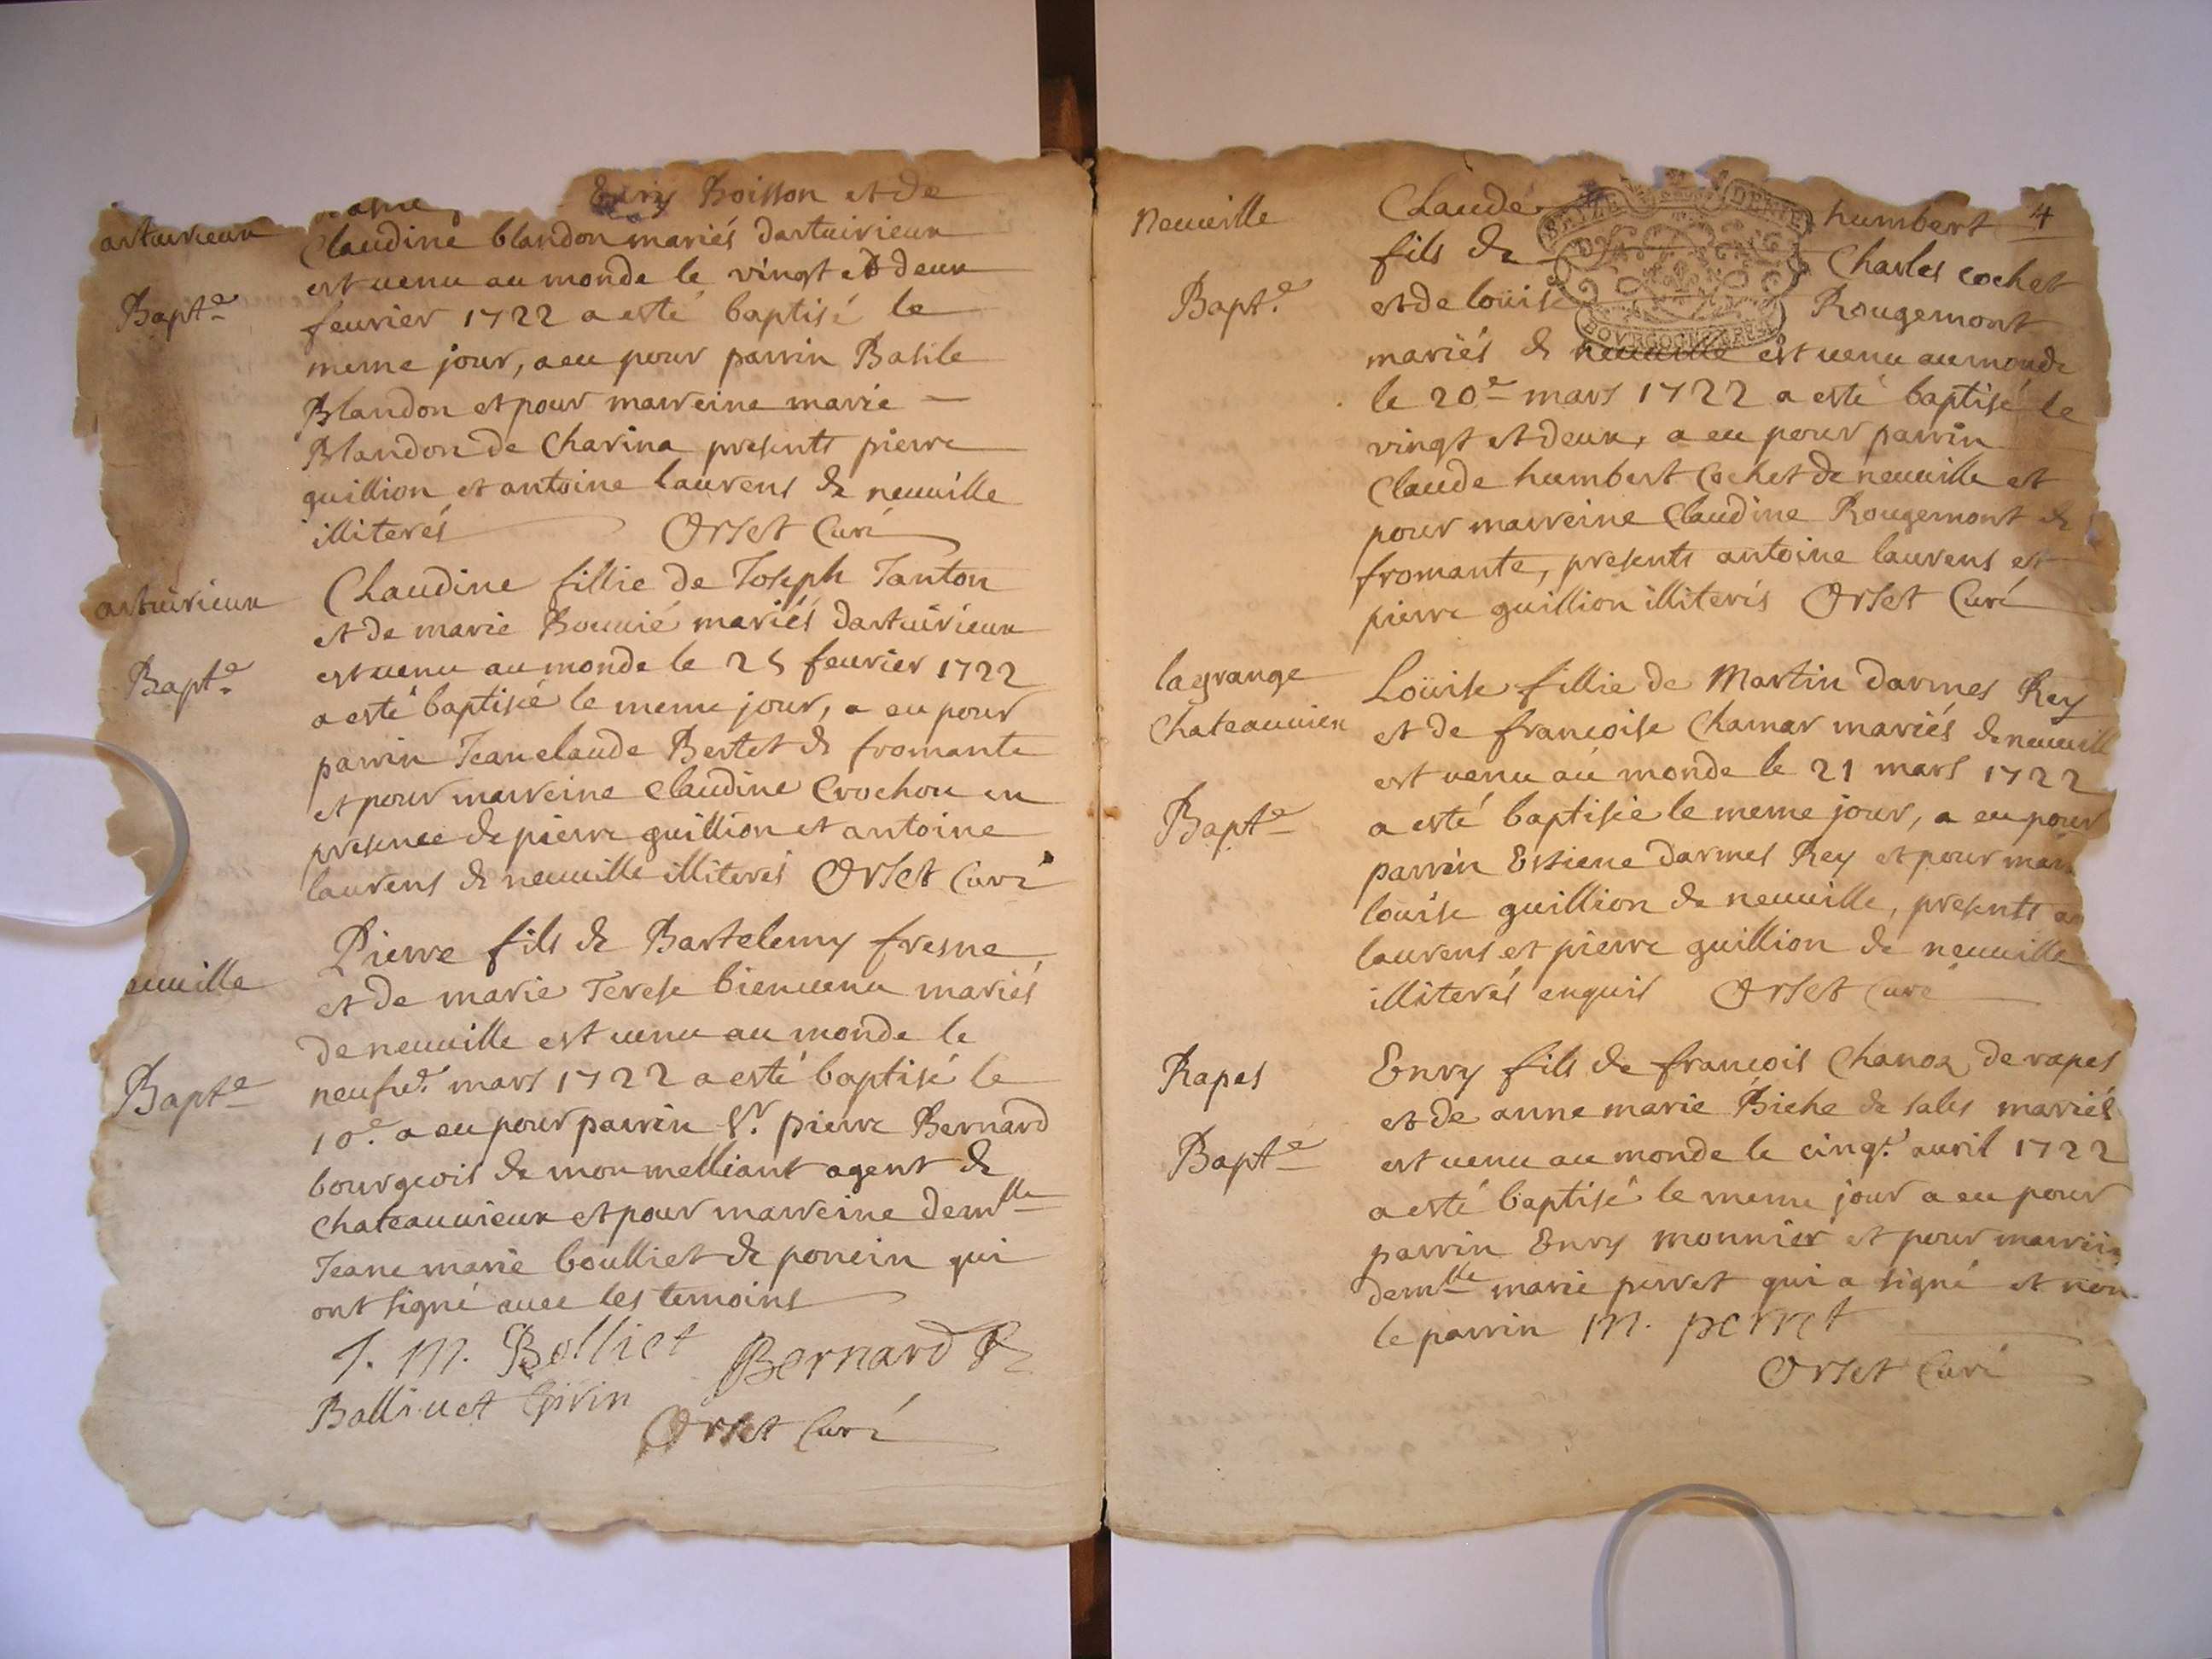 Envy Boisson et de
artuirieux
Claudine blandon mariés dartuirieux
est uenu au monde le vingt et deux
Bapt.e
feurier 1722 a esté baptisé le
meme jour, a eu pour parrin Basile
Blandon et pour marreine marie
Blandon de Charina presents pierre
guillion et antoine laurens de neuuille
illiterés Orset Curé
artuirieux
Claudine fillie de Joseph Tanton
et de marie Bouuié mariés dartuirieux
est uenu au monde le 25 feurier 1722
Bapt.e
a esté baptisée le meme jour, a eu pour
parrin Jeanclaude Bertet de fromante
et pour marreine claudine Crochon en
presence de pierre guillion et antoine
laurens de neuuille illiterés Orset Curé
Pierre fils de Bartelemy fresne
euuille
et de marie Terese bienuenu mariés
de neuuille est uenu au monde le
Bapt.e
neufue. mars 1722 a esté baptisé le
10.e a eu pour parrin Sr. pierre Bernard
bourgeois de monmelliant agent de
chateauuieux et pour marreine demlle
Jeane marie boulliet de poncin qui
ont signé auec les temoins
J. M. Bolliet Bernard
Ballivet Girin
Orset Curé
4
Neuuille
Claude humbert
fils de Charles cochet
Bapt.e
et de loüise Rougemont
mariés de neuuille est uenu au monde
le 20e mars 1722 a esté baptisé le
vingt et deux, a eu pour parrin
Claude humbert Cochet de neuuille et
pour marreine Claudine Rougemont de
fromante, presents antoine laurens et
pierre guillion illiterés Orset Curé
lagrange
Chateauuieux
Loüise fillie de Martin darmes Rey
et de francoise Chamar mariés de neuuill
est uenu au monde le 21 mars 1722
Bapt.e
a esté baptisée le meme jour, a eu pour
parrin Estiene darmes Rey et pour mar
louise guillion de neuuille, presents an
laurens et pierre guillion de neuuille
illiterés enquis Orset Curé
Rapes
Envy fils de francois Chanoz de rapes
et de anne marie Biche de sales mariés
Bapt.e
est uenu au monde le cinq.e auril 1722
a esté baptisé le meme jour a eu pour
parrin Envy monnier et pour marrein
demlle marie perret qui a signé et non
le parrin M. perret
Orset Curé